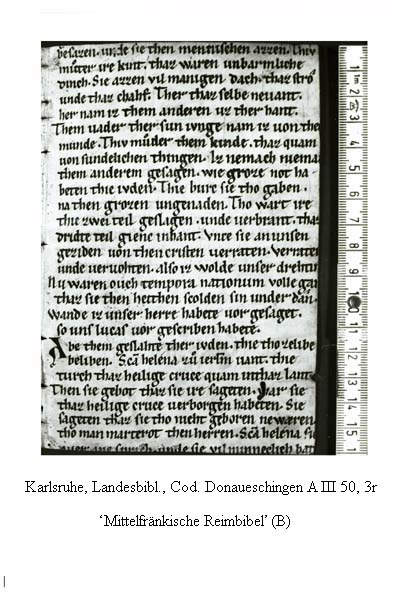 besazen. unde sie then mennischen azzen. Thiv
muͦter ire kint. thaz waren unbarmliche
dinch. Sie azzen vil manigen dach. thaz stro
unde thaz chaf. Ther thaz selbe nevant.
her nam iz them anderen uz ther hant.
Them uader ther sun iunge nam iz uon the
munde. Thiv muͦder them kinde. thaz quam
uon sundelichen thingen. Iz nemach niema
them anderem gesagen. wie groze not ha
beten thie iuden. Thie burc sie tho gaben.
na then grozen ungenaden. Tho wart ire
thie zwei teil geslagen. unde uerbrant. thaz
dridte teil gienc in hant. Unce sie an unsen
geziden uon then cristen verraten. verraten
unde veruohten. also iz wolde unser drehtin
Nu waren ouch tempora nationum volle gan
thaz sie then heithen scolden sin under dan.
wande iz unser herre habete uor gesaget.
so uns lucas uor gescriben habete.
Abe them geslahte ther iuden. thie tho zelibe
beliben. Scā helena zu ierſlm uant. thie
turch thaz heilige cruce quam in thaz lant.
Then sie gebot thaz sie ire sageten. war sie
thaz heilige cruce verborgen habeten. Sie
sageten thaz sie tho nieht geboren ne waren.
tho man marterot then herren. Scā helena sie
Karlsruhe, Landesbibl., Cod. Donaueschingen A III 50, 3r
‘Mittelfränkische Reimbibel’ (B)
1 2 3 4 5 6 7 8 9 10 11 12 13 14 15